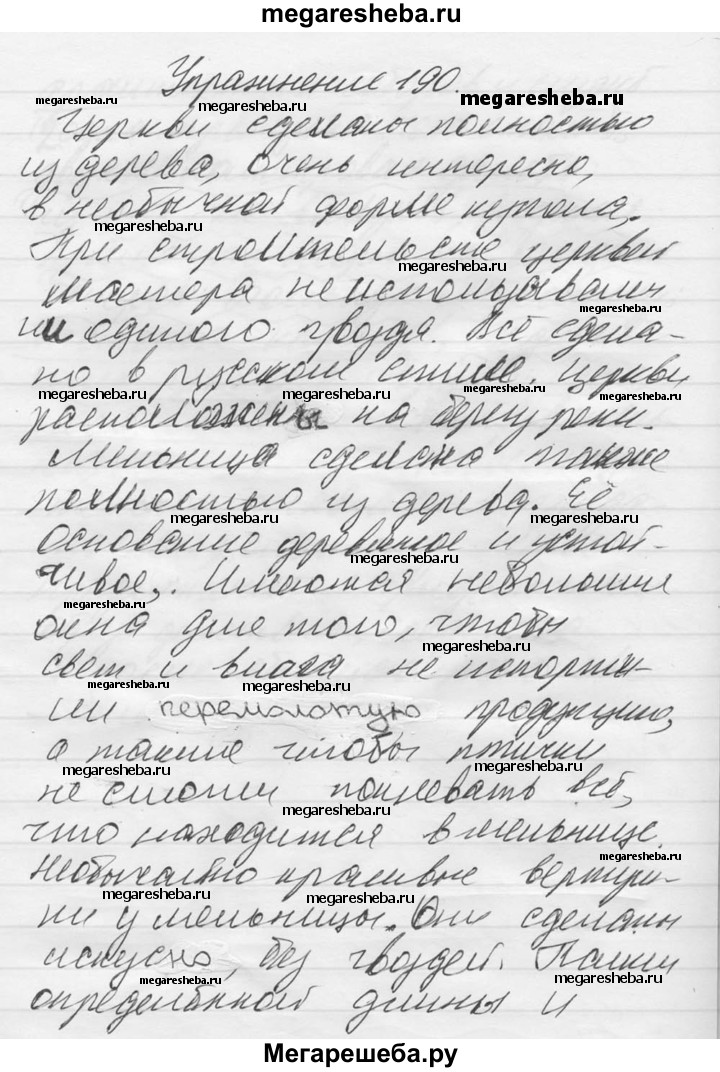 megaresheba.ru
Упражнение 190.
Церкви сделаны полностью
из дерева, очень интересно,
в необычной форме купола.
При строительстве церквей
мастера не использовали
ни единого гвоздя. Всё сдела-
но в русском стиле. Церкви
расположены на берегу реки.
Мельница сделана также
полностью из дерева. Её
основание деревянное и устой-
чивое,. Имеются небольшие
окна для того, чтобы
свет и влага не испорти-
ли перемолотую продукцию,
а также чтобы птички
не смогли поклевать всё,
что находится в мельнице.
Необычайно красивые вертуш-
ки у мельницы. Они сделаны
искусно, без гвоздей. Палки
определённой длины и
Мегарешеба.ру